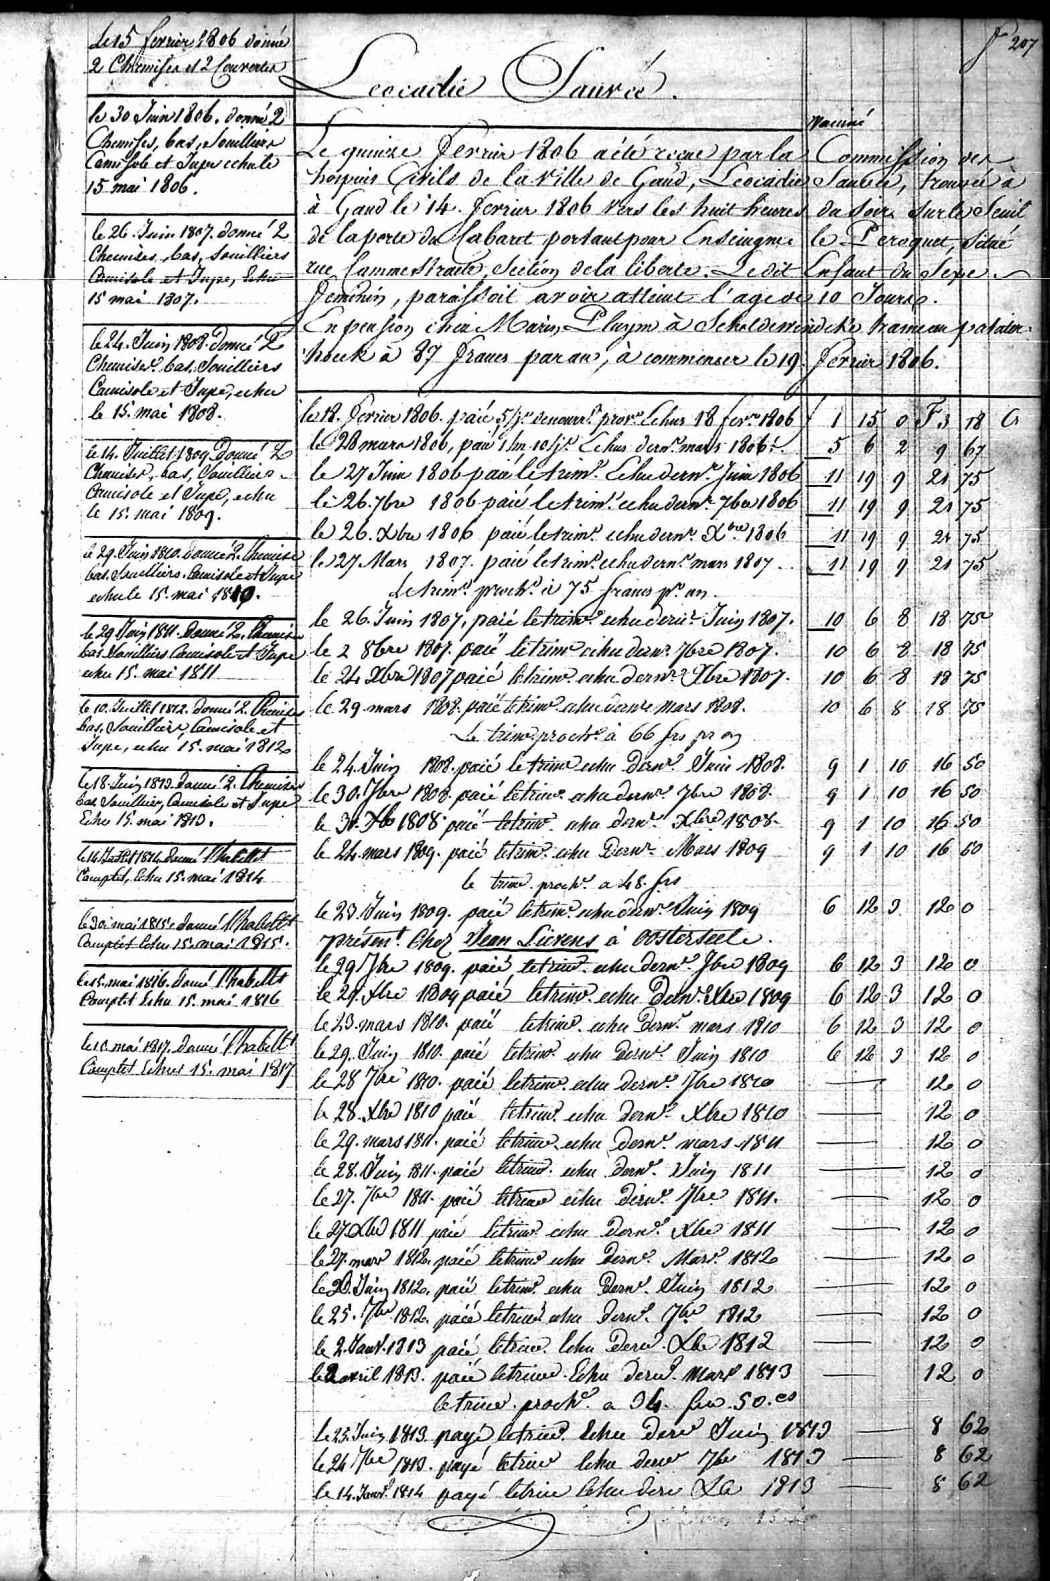 f° 207
Leocadie Sauvée.
le 15 fevrier 1806 donné
2 Chemises et 2 Couvertes
le 30 Juin 1806. donné 2
Chemises, bas, Souilliers
Camisole et Jupe echu le
15 mai 1806.
le 26. Juin 1807. donné 2
Chemises, bas, Souilliers
Camisole et Jupe, Echu
15 mai 1807.
le 24. Juin 1808. Donné 2
Chemises. bas, Souilliers
Camisole et Jupe, echu
le 15. mai 1808.
le 14. Juillet 1809. Donné 2
Chemises, bas, Souilliers
Camisole et Jupe, echu
le 15. mai 1809.
le 29. Juin 1810. donné 2. Chemises
bas. Souilliers. Camisole et Jupe
echu le 15. mai 1810.
le 29 Juin 1811. Donné 2. Chemises
bas. Souilliers Camisole et Jupe
echu 15. mai 1811
le 10. Juillet 1812. donné 2. Chemises
bas, Souilliers, Camisole et
Jupe, echu 15. mai 1812
le 18. Juin 1813. donné 2. Chemises
bas, Souilliers, Camisole et Jupe
Echu 15. mai 1813.
le 14 Juillet 1814. donné l'habillt
Complet, Echu 15. mai 1814
le 30. mai 1815. donné l'habillt
Complet Echu 15. mai 1815.
le 15. mai 1816. donné l'habillt
Complet Echu 15. mai 1816
le 10. mai 1817. donné l'habillt
Complet Echus 15. mai 1817
Vaciné
Le quinze Fevrier 1806 a été recue par la Commission des
hospices Civils de la Ville de Gand, Leocadie Sauvée, trouvée à
à Gand le 14. Fevrier 1806 vers les huit heures du soir sur le Seuil
de la porte du Cabaret portant pour Enseingne le Peroquet, Situé
rue Cammestraete, Section de la liberte. Le dit Enfant du Sexe
Feminin, paraissoit avoir atteint l'age de 10 Jours.
En pension chez Marin Pluym à Scheldewindeke hameau
hoek à 87 francs par an, à commencer le 19. Fevrier 1806.
le 18. Fevrier 1806. paié 5/j.s prov. Echus 18 fevr. 1806 1 15 0 F 3 18 C
le 28 mars 1806, paié 1 m. 10 j.s Echus dern.r mars 1806. 5 6 2 9 67
le 27 Juin 1806 paié le trim.e Echu dern.r Juin 1806 11 19 9 21 75
le 26. 7bre 1806 paié le trim.e echu dern.r 7bre 1806 11 19 9 21 75
le 26. Xbre 1806 paié le trim.e echu dern.r Xbre 1806 11 19 9 21 75
le 27 Mars 1807. paié le trim.e echu dern.r mars 1807 11 19 9 21 75
Le trim.e proch.n à 75 francs p.r an.
le 26. Juin 1807, paié le trim.e echu dern.r Juin 1807. 10 6 8 18 75
le 2 8bre 1807. paié le trime echu dern.r 7bre 1807. 10 6 8 18 75
le 24 Xbre 1807 paié le trime echu dern.r Xbre 1807. 10 6 8 18 75
le 29 mars 1808. paié le trime echu dern.r mars 1808. 10 6 8 18 75
Le trime proch.n à 66 frs pr an
le 24. Juin 1808. paié le trime echu dern.r Juin 1808. 9 1 10 16 50
le 30. 7bre 1808. paié le trime echu dern.r 7bre 1808. 9 1 10 16 50
le 31. Xb 1808 paié le trime echu dern.r Xbre 1808. 9 1 10 16 50
le 24 mars 1809. paié le trime echu Dern.r Mars 1809 9 1 10 16 50
le trime proch.n a 48. frs
le 23 Juin 1809. paié le trime echu dern.r Juin 1809 6 12 3 12 0
présent.t Chez Jean Lievens à Oosterseele.
le 29 7bre 1809. paié le trime echu dern.r 7bre 1809 6 12 3 12 0
le 29. Xbre 1809 paié le trime echu Dern.r Xbre 1809 6 12 3 12 0
le 23. mars 1810. paié le trime echu Dern.r mars 1810 6 12 3 12 0
le 29. Juin 1810. paié le trime echu Dern.r Juin 1810 6 12 3 12 0
le 28 7bre 1810. paié le trime echu dern.r 7bre 1810 — 12 0
le 28. Xbre 1810 paié le trime echu dern.r Xbre 1810 — 12 0
le 29. mars 1811. paié le trime echu Dern.r mars 1811 — 12 0
le 28. Juin 1811. paié le trime echu dern.r Juin 1811 — 12 0
le 27. 7bre 1811. paié le trime echu dern.r 7bre 1811. — 12 0
le 27 Xbre 1811 paié le trime echu dern.r Xbre 1811 — 12 0
le 27. mars 1812. paié le trime echu Dern.r Mars 1812 — 12 0
le 26. Juin 1812. paié le trime echu Dern.r Juin 1812 — 12 0
le 25. 7bre 1812. paié le trime echu Dern.r 7bre 1812 — 12 0
le 2. Janv. 1813 paié le trime Echu Dern.r Xbre 1812 — 12 0
le 2 avril 1813. paié le trime Echu dern.r Mars 1813 — 12 0
le trime proch.n a 34. frs 50. cs
le 25. Juin 1813 payé le trime Echu dern.r Juin 1813 — 8 62
le 24 7bre 1813. payé le trime Echu dern.r 7bre 1813 — 8 62
le 14. Janv. 1814 payé le trime Echu dern.r Xb 1813 — 8 62